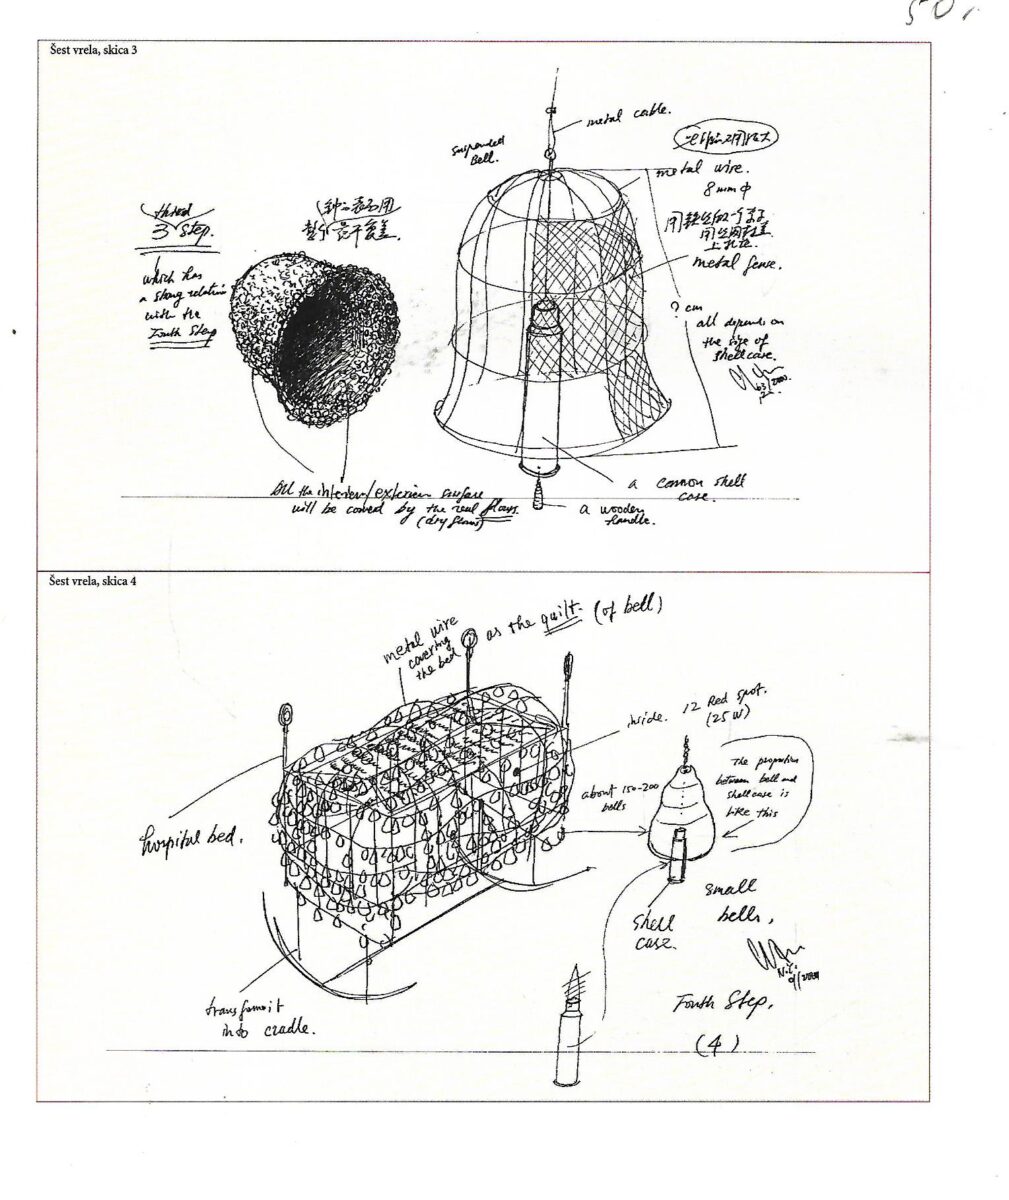 50,
Šest vrela, skica 3
metal cable.
suspended
Bell.
metal wire.
8 mm φ
third
3 step.
which has
a strong relation
with the
Fouth Step
metal fense.
? cm
all depends on
the size of
shellcase.
All the interior/exterior surface
will be coverd by the real flours.
(dry flours)
a cannon shell
case.
a wooden
handle.
Šest vrela, skica 4
metal wire
covering
the bed
as the quilt. (of bell)
inside. 12 Red spot.
(25 W)
about 150-200
bells
The proportion
between bell and
shellcase is
like this
hospital bed.
small
bells,
shell
case.
transform it
into cradle.
Fouth Step,
(4)